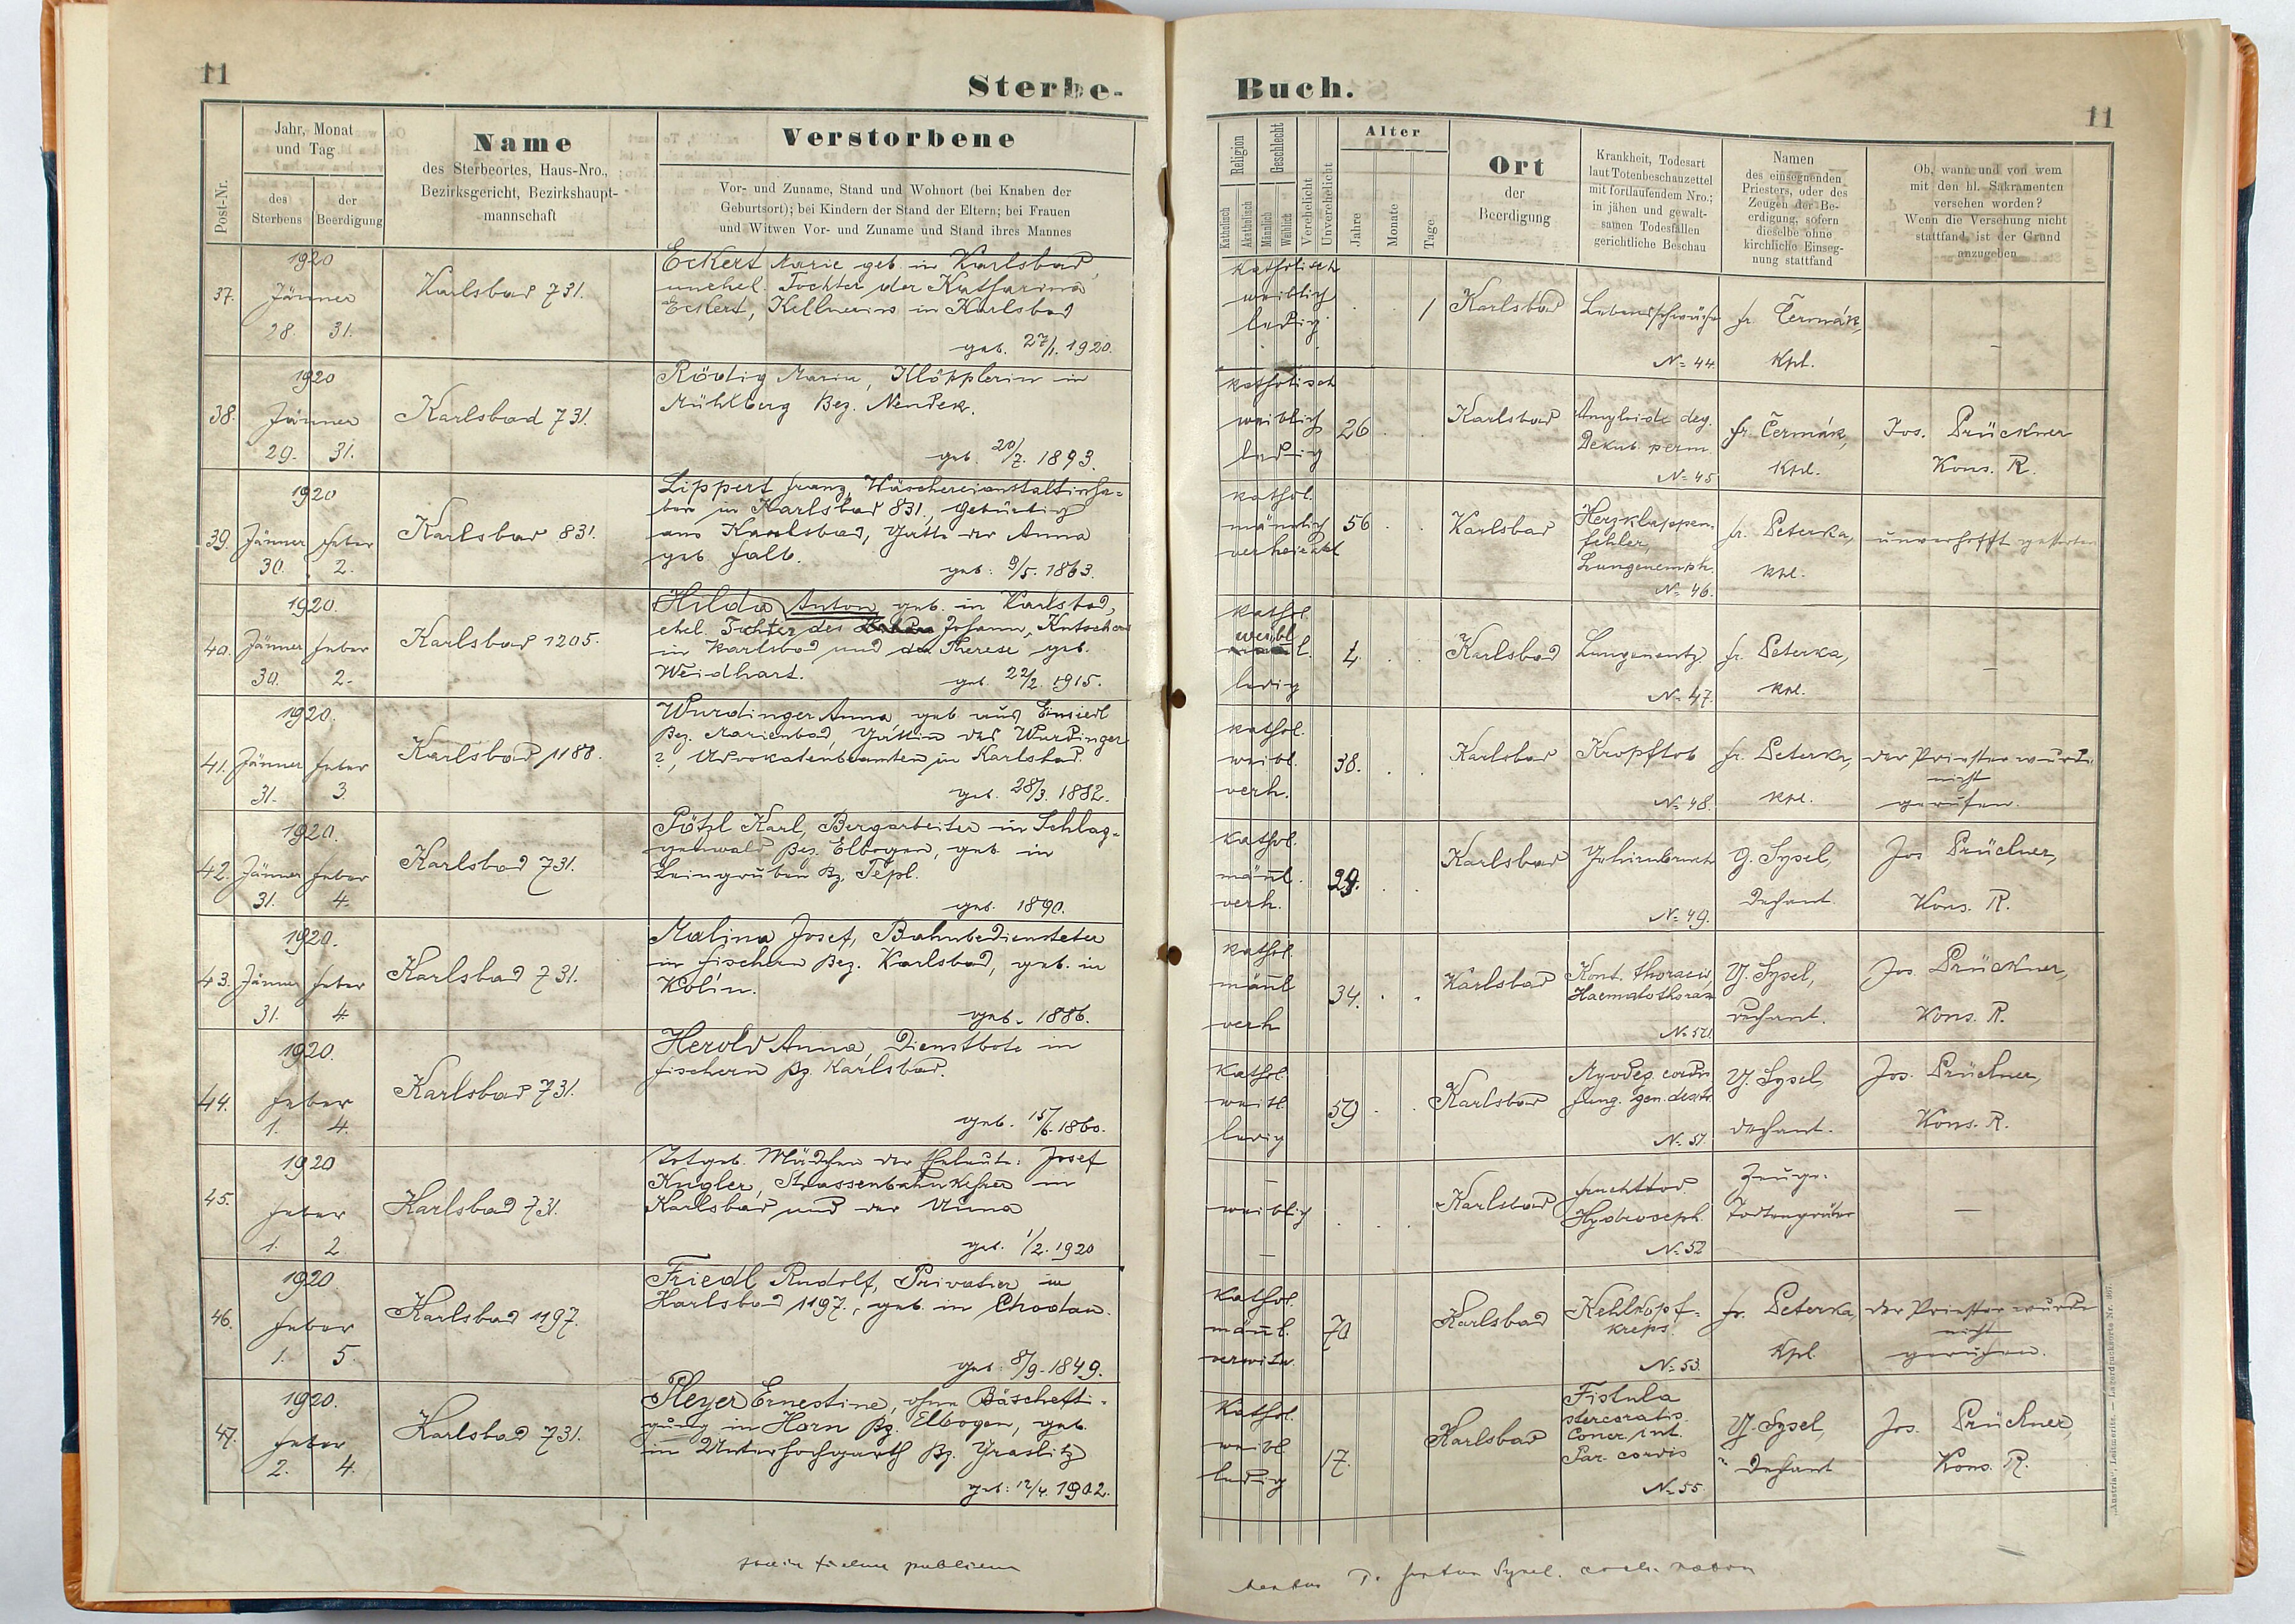 11
Sterbe-
Post-Nr.
Jahr, Monat
und Tag
des
Sterbens
der
Beerdigung
Name
des Sterbeortes, Haus-Nro.,
Bezirksgericht, Bezirkshaupt-
mannschaft
Verstorbene
Vor- und Zuname, Stand und Wohnort (bei Knaben der
Geburtsort); bei Kindern der Stand der Eltern; bei Frauen
und Witwen Vor- und Zuname und Stand ihres Mannes
37.
1920
Jänner
28. 31.
Karlsbad 731.
Eckert Marie geb. in Karlsbad,
unehel. Tochter der Katharina
Eckert, Kellnerin in Karlsbad
geb. 27/1. 1920.
38.
1920
Jänner
29. 31.
Karlsbad 731.
Rödig Maria, Klöpplerin in
Mühlberg Bez. Neudek.
geb. 20/7. 1893.
39.
1920
Jänner Feber
30. 2.
Karlsbad 831.
Lippert Franz, Wäschereianstaltinha-
ber in Karlsbad 831, gebürtig
aus Karlsbad, Gatte der Anna
geb. Falb.
geb: 9/5. 1863.
40.
1920.
Jänner Feber
30. 2.
Karlsbad 1205.
Hilda Anton, geb. in Karlsbad,
ehel. Tochter des Johann, Kutscher
in Karlsbad und der Therese geb.
Weidhart.
geb. 22/2. 1915.
41.
1920.
Jänner Feber
31. 3.
Karlsbad 1188.
Wurdinger Anna, geb. aus Einsiedl
Bez. Marienbad, Gattin des Wurdinger
?, Advokatenbeamten in Karlsbad.
geb. 28/3. 1882.
42.
1920.
Jänner Feber
31. 4.
Karlsbad 731.
Pötzl Karl, Bergarbeiter in Schlag-
genwald Bez. Elbogen, geb. in
Leingruben Bz. Tepl.
geb. 1890.
43.
1920.
Jänner Feber
31. 4.
Karlsbad 731.
Malina Josef, Bahnbediensteter
in Fischern Bez. Karlsbad, geb. in
Kolin.
geb. 1886.
44.
1920.
Feber
1. 4.
Karlsbad 731.
Herold Anna, Dienstbote in
Fischern Bz. Karlsbad.
geb. 15/6. 1860.
45.
1920
Feber
1. 2
Karlsbad 731.
Totgeb. Mädchen der Eheleute: Josef
Kugler, Strassenbahnkehrer in
Karlsbad und der Anna
geb. 1/2. 1920
46.
1920.
Feber
1. 5.
Karlsbad 1197.
Friedl Rudolf, Privatier in
Karlsbad 1197., geb. in Chodau.
geb: 8/9. 1849.
47.
1920.
Feber
2. 4.
Karlsbad 731.
Pleyer Ernestine, ohne Bäschefti-
gung in Horn Bz. Elbogen, geb.
in Unterhochgarth Bz. Graslitz
geb: 12/4. 1902.
publicum
Buch.
11
Religion
Katholisch
Akatholisch
Geschlecht
Männlich
Weiblich
Verehelicht
Unverehelicht
Alter
Jahre
Monate
Tage
Ort
der
Beerdigung
Krankheit, Todesart
laut Totenbeschauzettel
mit fortlaufendem Nro.;
in jähen und gewalt-
samen Todesfällen
gerichtliche Beschau
Namen
des einsegnenden
Priesters, oder des
Zeugen der Be-
erdigung, sofern
dieselbe ohne
kirchliche Einseg-
nung stattfand
Ob, wann und von wem
mit den hl. Sakramenten
versehen worden?
Wenn die Versehung nicht
stattfand, ist der Grund
anzugeben
katholisch
weiblich
ledig
1
Karlsbad
Lebensschwäche
N= 44.
Fr. Čermák,
Kpl.
–
katholisch
weiblich
ledig
26
Karlsbad
Amyloide deg.
Dekub. perm.
N= 45
Fr. Čermák,
Kpl.
Jos. Prückner
Kons. R.
kathol.
männlich
verheiratet
56
Karlsbad
Herzklappen-
fehler,
Lungenemph.
N= 46.
Fr. Peterka,
kpl.
unverhofft gestorben
kathol.
weibl.
ledig
4
Karlsbad
Lungenentz.
N= 47.
Fr. Peterka,
kpl.
–
kathol.
weibl.
verh.
38.
Karlsbad
Kropftod
N= 48.
Fr. Peterka,
kpl.
der Priester wurde
nicht
gerufen.
kathol.
männl.
verh.
29.
Karlsbad
N= 49.
G. Sysel,
Dechant.
Jos Prückner,
Kons. R.
kathol.
männl
verh
34.
Karlsbad
Kont. thoracis,
Haematothorax
N= 50.
G. Sysel,
Dechant.
Jos. Prückner,
Kons. R.
Kathol.
weibl.
ledig
59
Karlsbad
Myodeg. cordis
Fung. gen. dextr.
N= 51.
G. Sysel,
Dechant.
Jos. Prückner,
Kons. R.
–
weiblich
–
Karlsbad
Fruchttod
Hydroceph.
N= 52
Zeuge:
Todtengräber
–
Kathol.
männl.
verwitw.
70
Karlsbad
Kehlkopf-
kreps.
N= 53.
Fr. Peterka,
Kpl.
der Priester wurde
nicht
gerufen.
Kathol.
weibl.
ledig
17.
Karlsbad
Fistula
stercoralis.
Par. cordis
N= 55.
G. Sysel,
Dechant
Jos. Prückner,
Kons. R.
Sysel.
„Austria“, Leitmeritz. — Lagerdrucksorte Nr. 307.